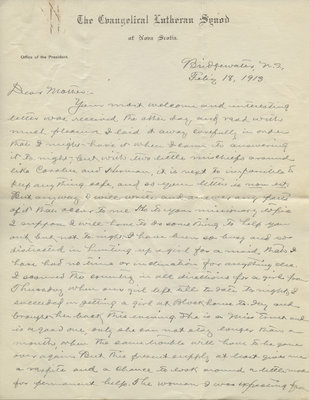 The Evangelical Lutheran Synod
of Nova Scotia.
Office of the President.
Bridgewater N.S.
Feby 18, 1913
Dear
Your most welcome and interesting
letter was received the other day and read with
much pleasure. I laid it away carefully in order
that I might have it when I came to answering
it to-night. But with two little mischiefs around
like and Norman, it is next to impossible to
keep anything safe, and so your letter is
But anyway I will write and answer any
of it that occur to me. As to your missionary topic
I suppose I will have to do something to help you
out, but not to-night. I have been so busy and so
distracted in hunting up a girl for a maid that I
have had no time or inclination for anything else.
I scoured the country in all directions for a girl from
Thursday when our girl left till to-night. I
succeeded in getting a girl at to-day and
brought her back this evening. She is a Miss and
is a good one, only she can not stay longer than a
month, when the same trouble will have to be gone
over again. But this present supply at least gives me
a respite and a chance to look around a little more
for permanent help. The woman I was expecting from